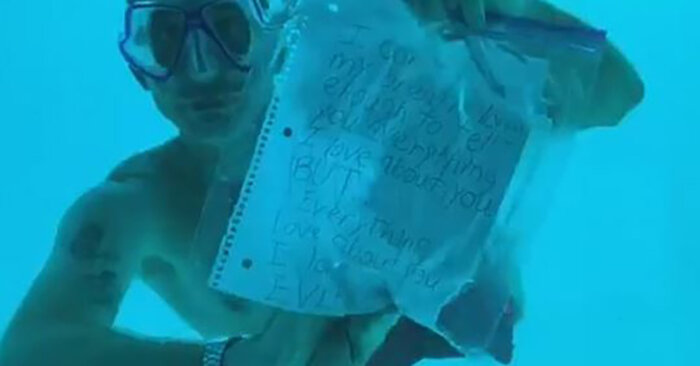 I
my breath
enough to tell
you everything
I love about you
BUT
Everything
love about you
I lo
EV